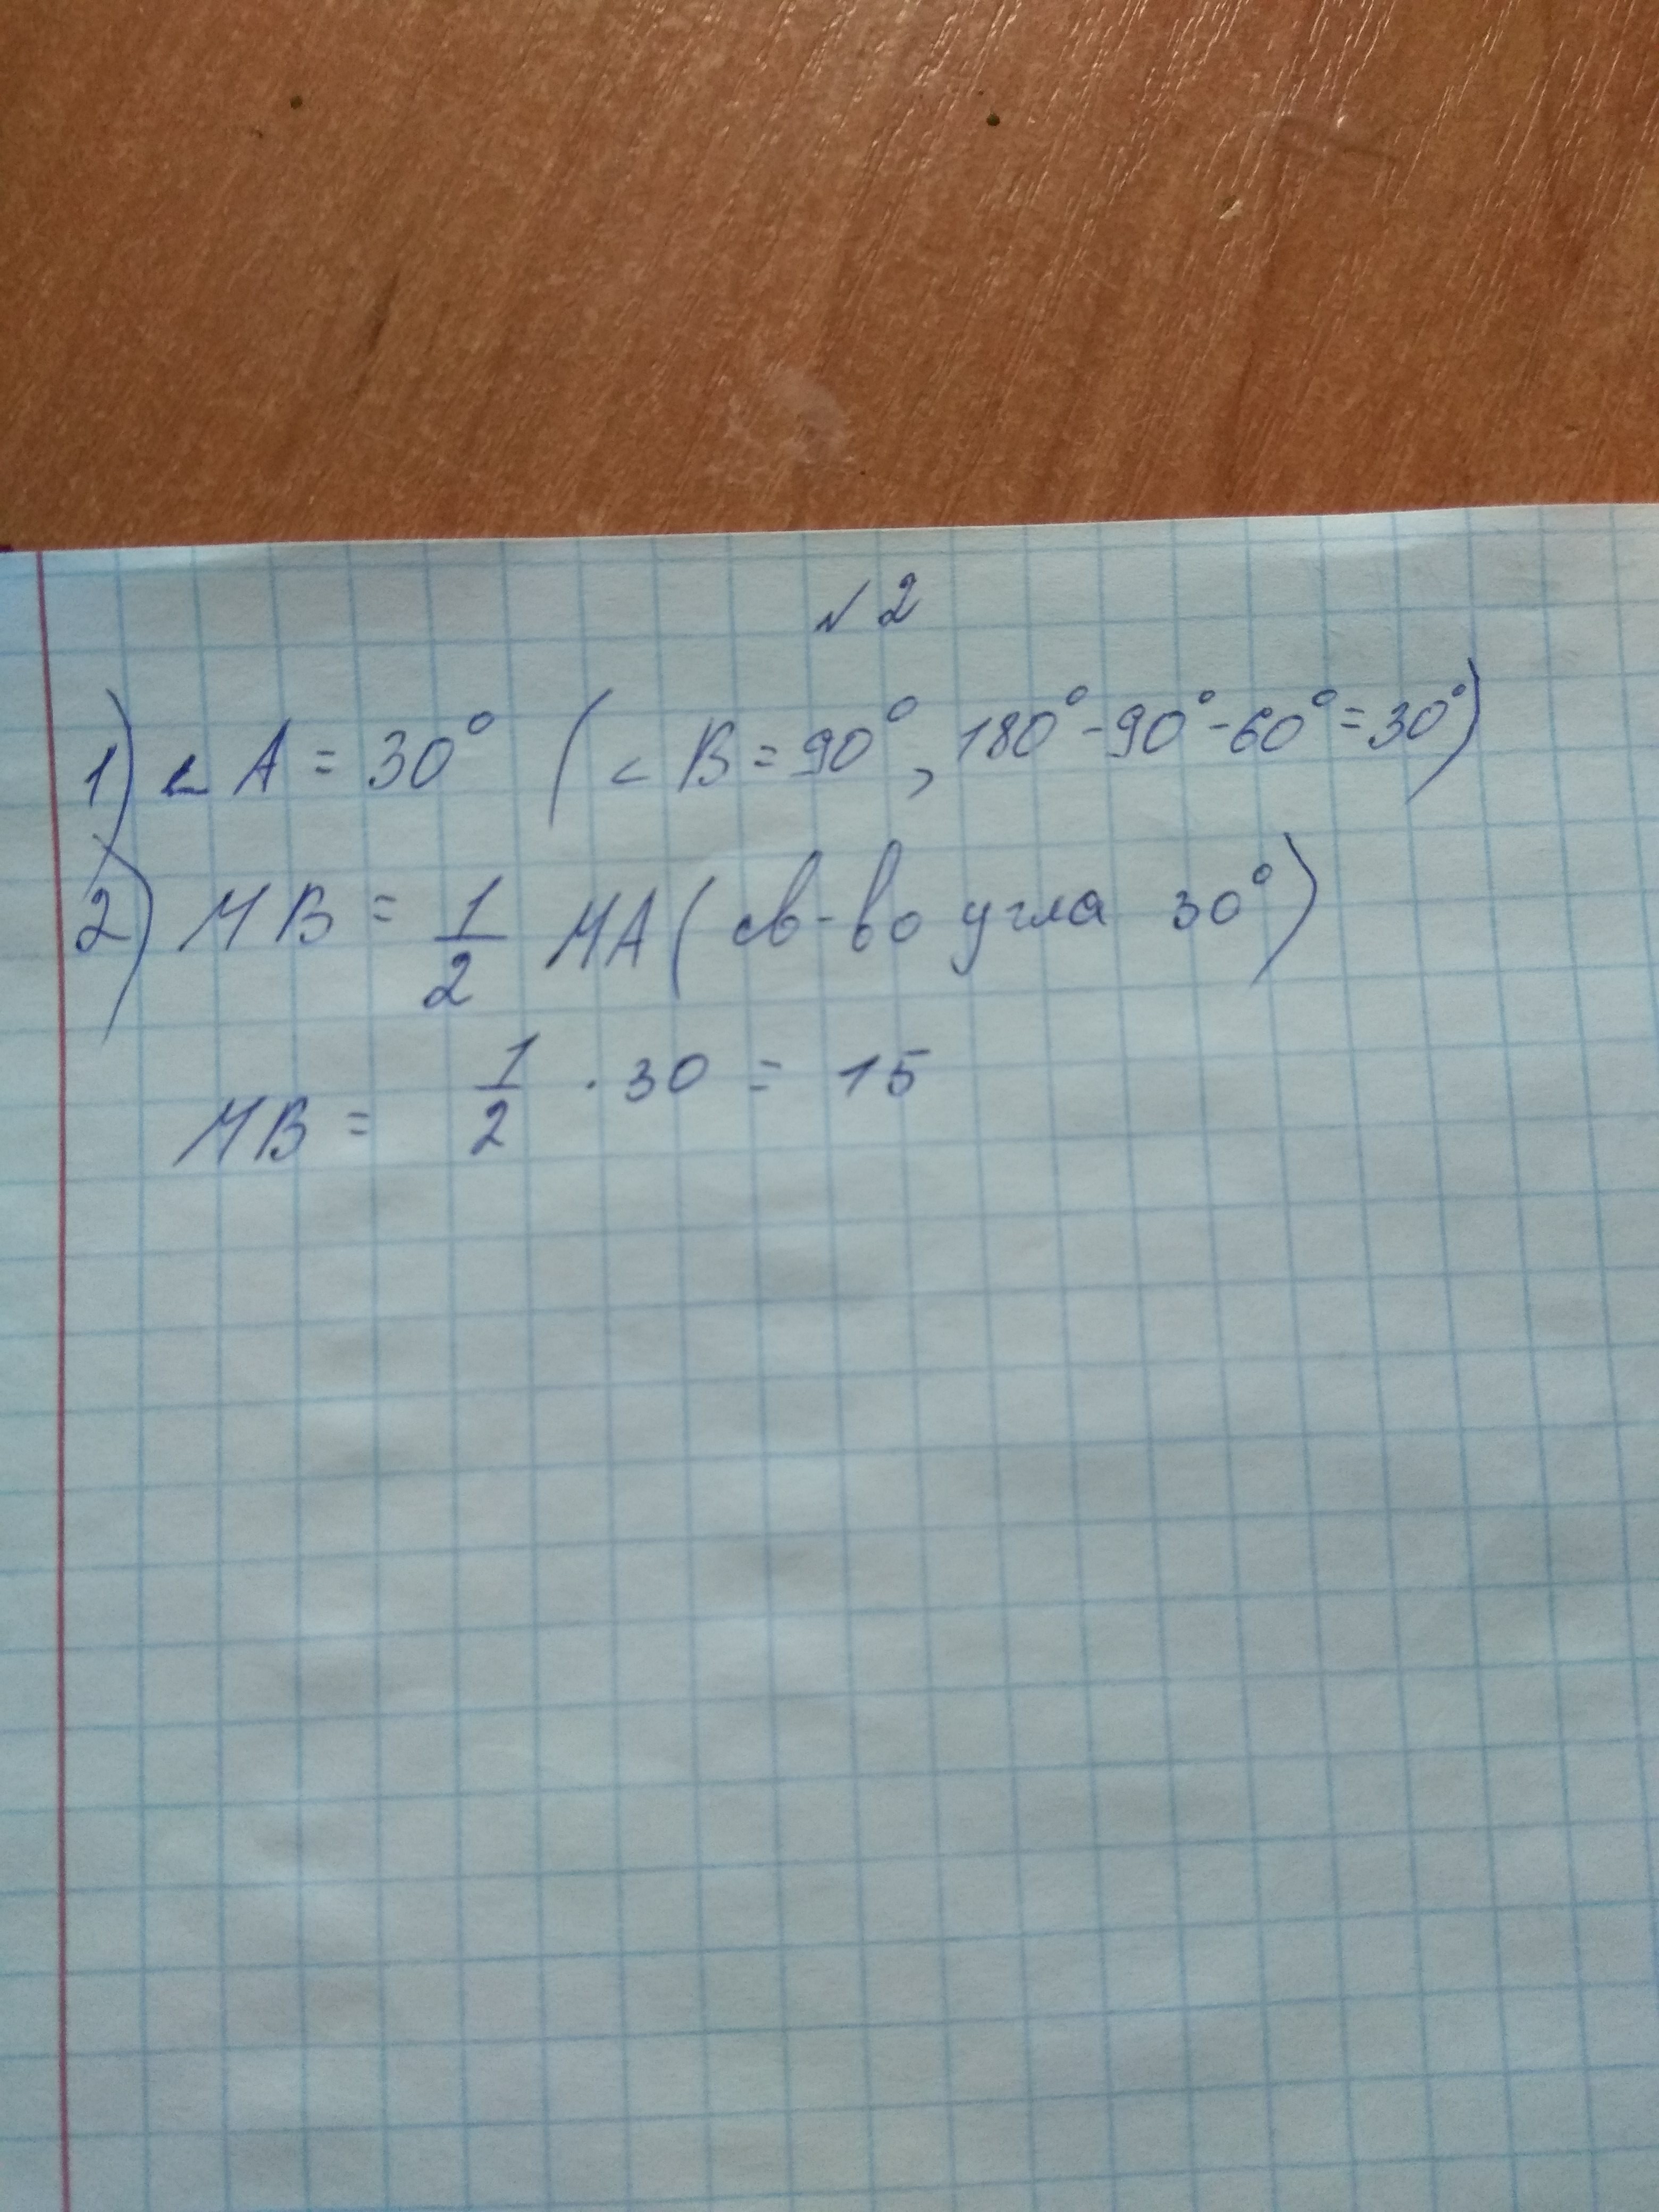 №2
1) ∠A = 30° (∠B = 90°, 180° - 90° - 60° = 30°)
2) MB = 1/2 MA (св-во угла 30°)
MB = 1/2 · 30 = 15